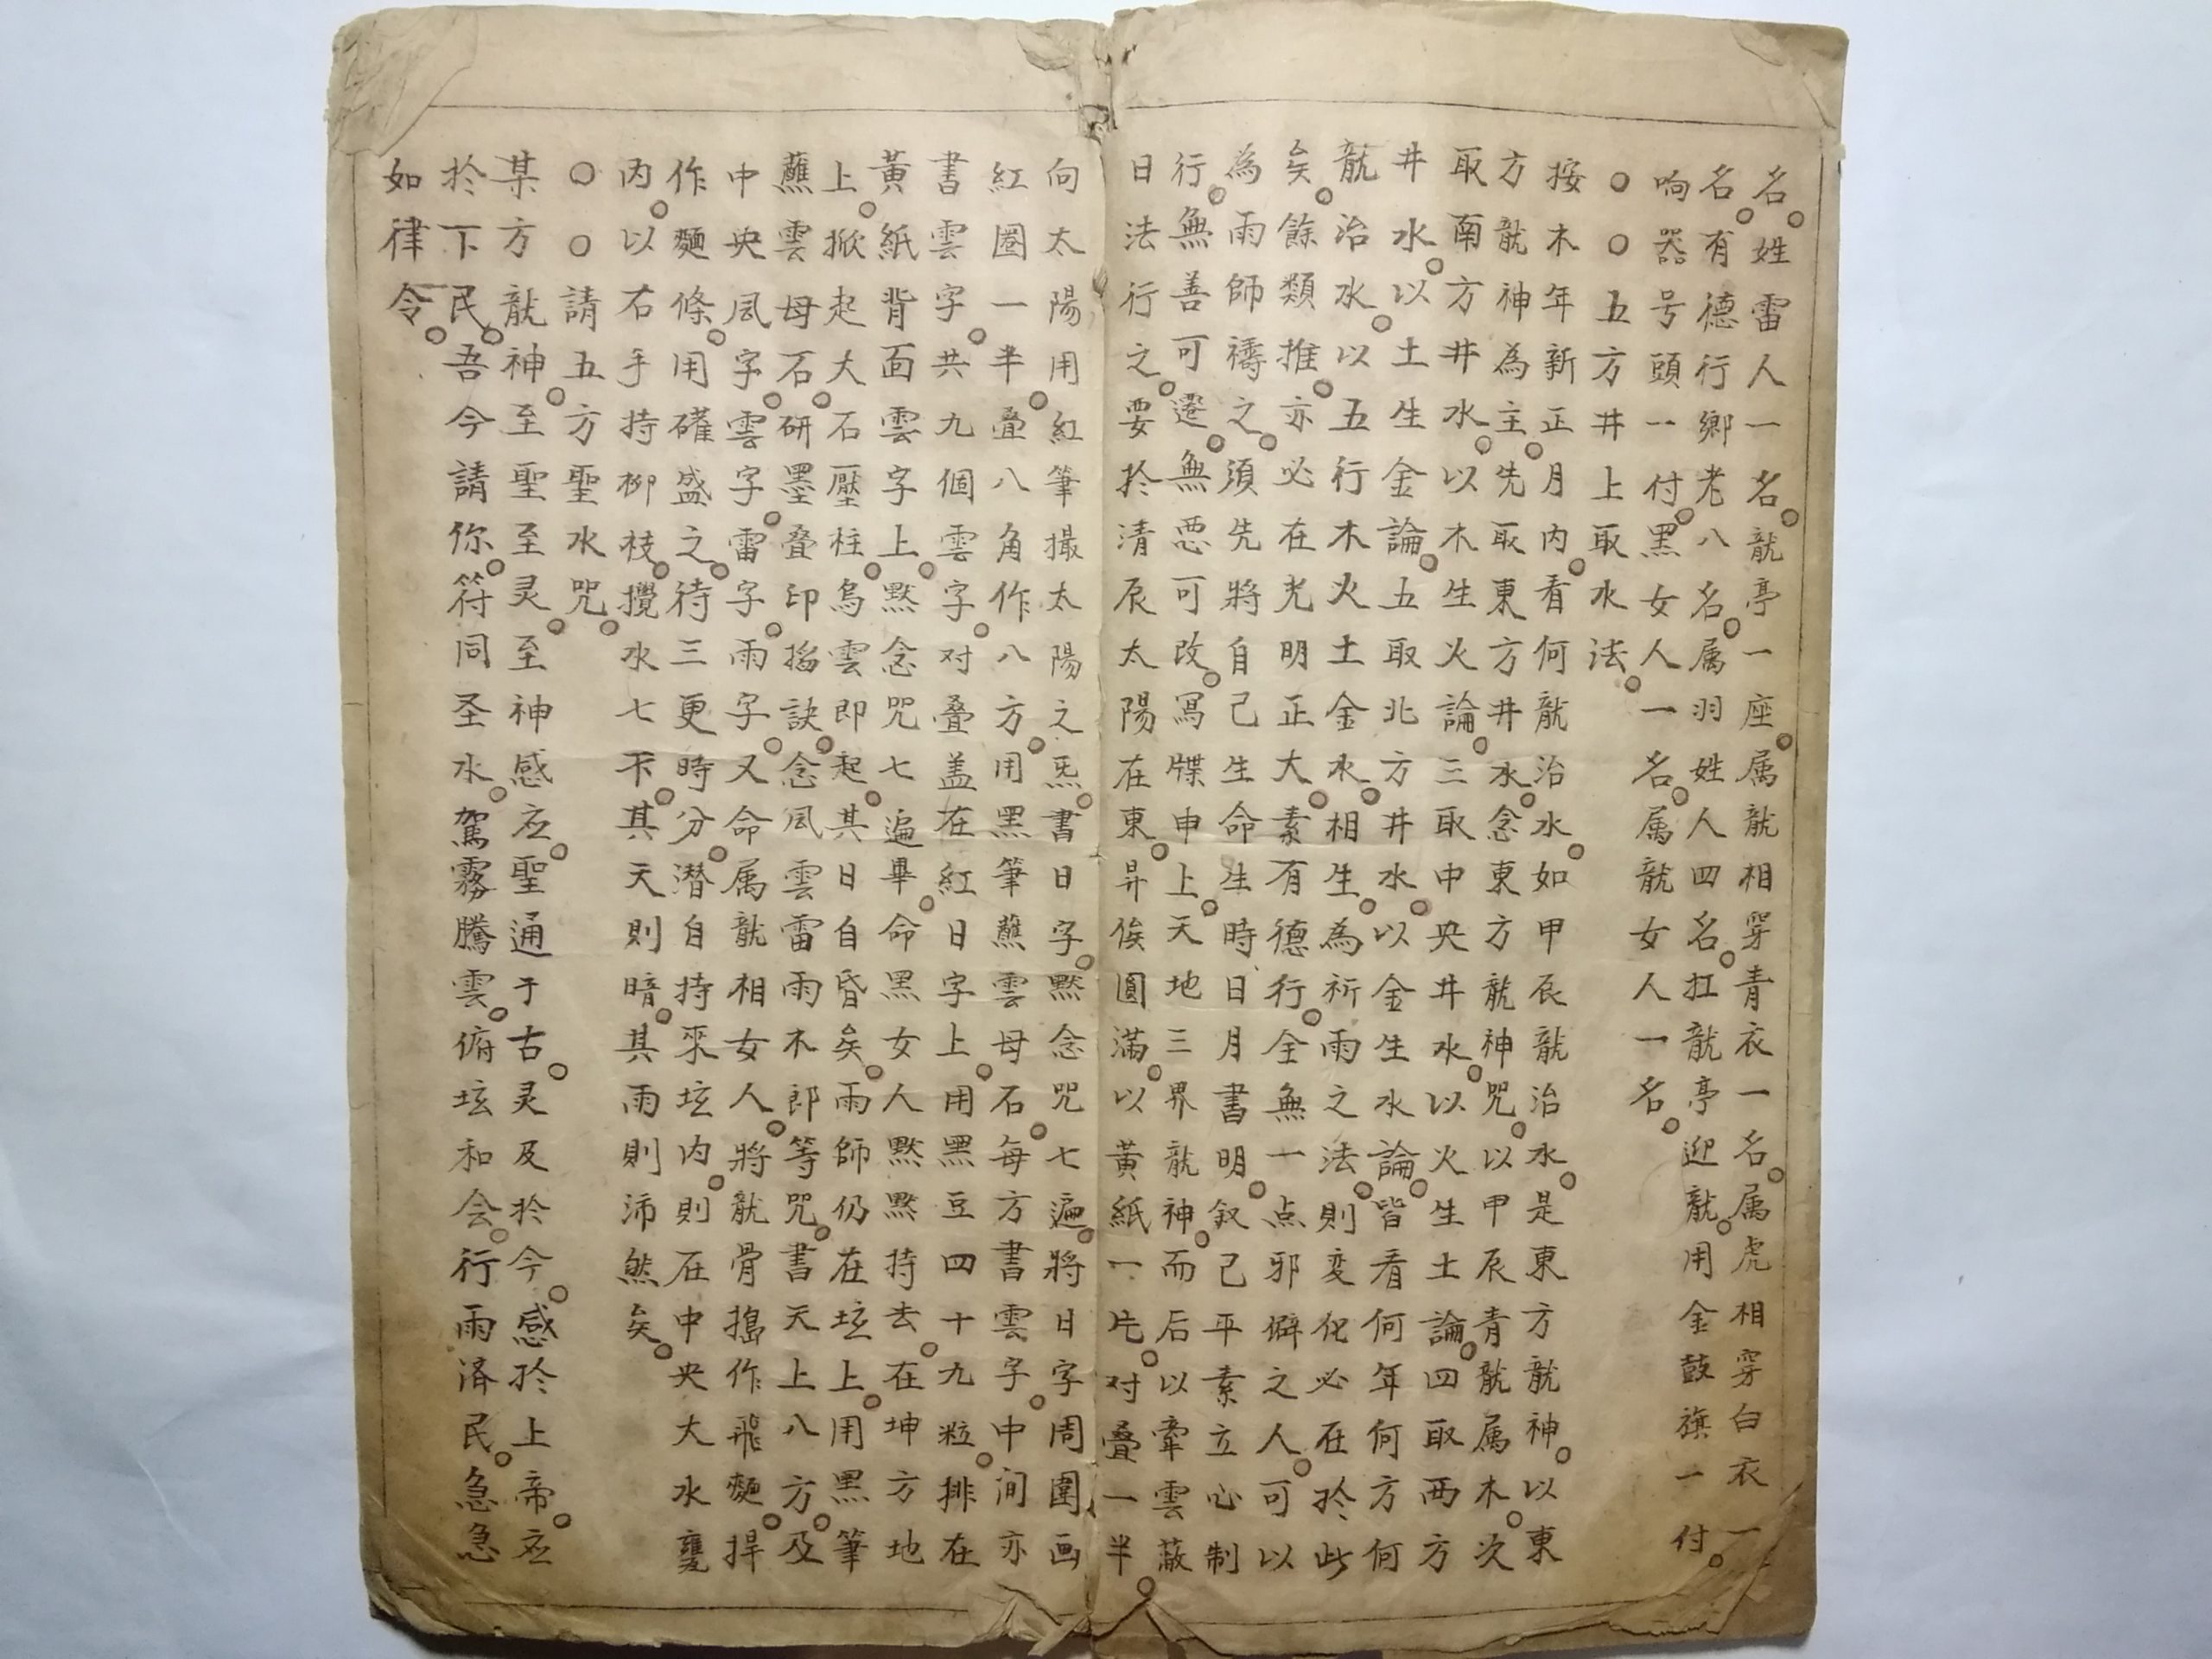 名。姓雷人一名。龍亭一座。属龍相穿青衣一名。属虎相穿白衣一
名。有德行鄉老八名。属羽姓人四名。扛龍亭迎龍。用金鼓旗一付。
响器号頭一付。黑女人一名。属龍女人一名。
○○五方井上取水法。
按木年新正月内。看何龍治水。如甲辰龍治水。是東方龍神。以東
方龍神為主。先取東方井水。念東方龍神咒。以甲辰青龍属木。次
取南方井水。以木生火論。三取中央井水。以火生土論。四取西方
井水。以土生金論。五取北方井水。以金生水論。皆看何年何方何
龍治水。以五行木火土金水。相生。為祈雨之法。則变化必在於此
矣。餘類推。亦必在光明正大。素有德行。全無一点邪僻之人。可以
為雨師禱之。須先將自己生命生時日月書明。叙己平素立心制
行。無善可遷。無恶可改。寫牒申上。天地三界龍神。而后以牽雲蔽
日法行之。要於清辰太陽在東。昇俟圓滿。以黃紙一片。对叠一半。
向太陽用。紅筆撮太陽之炁。書日字。默念咒七遍。將日字周圍画
紅圈一半。叠八角作八方。用黑筆蘸雲母石。每方書雲字。中间亦
書雲字。共九個雲字。对叠盖在紅日字上。用黑豆四十九粒。排在
黃紙背面雲字上。默念咒七遍畢。命黑女人默默持去。在坤方地
上。掀起大石壓柱。烏雲即起。其日自昏矣。雨師仍在坛上。用黑筆
蘸雲母石。研墨叠印掐訣。念風雲雷雨木郎等咒。書天上八方。及
中央風字。雲字。雷字。雨字。又命属龍相女人。將龍骨搗作飛麵。捍
作麵條。用礶盛之。待三更時分。潜自持來坛内。則在中央大水甕
内。以右手持柳枝。攪水七不。其天則暗。其雨則沛然矣。
○○請五方聖水咒。
某方龍神。至聖至灵。至神感应。聖通于古。灵及於今。感於上帝。应
於下民。吾今請你。符同圣水。駕霧騰雲。俯坛和会。行雨済民。急急
如律令。